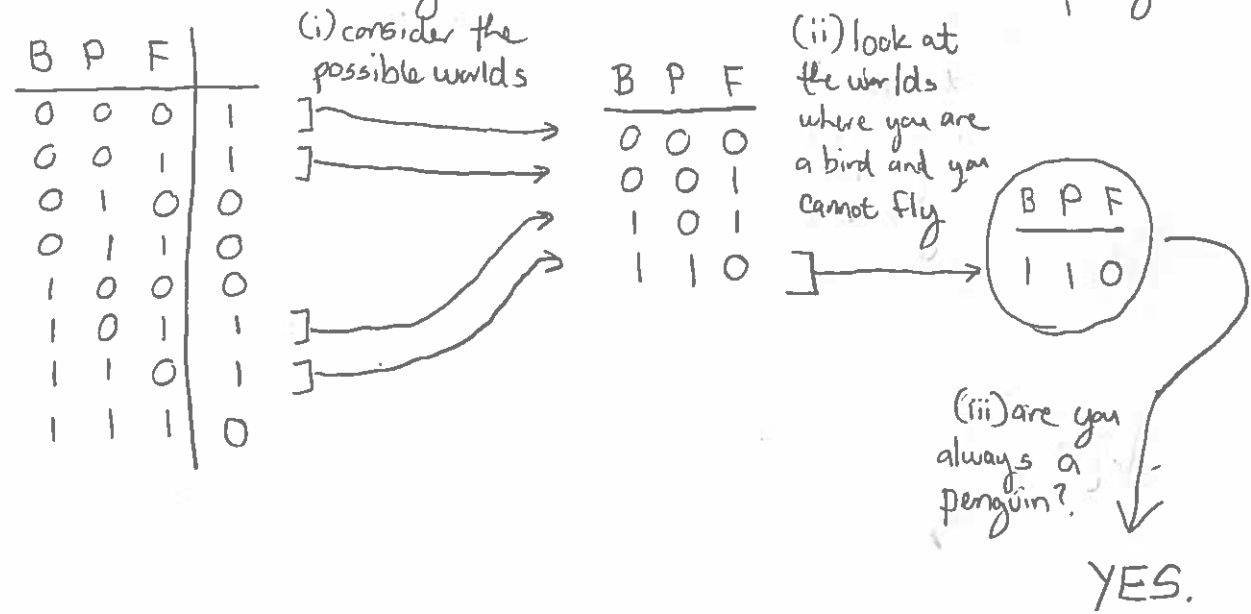 B P F
0 0 0 1
0 0 1 1
0 1 0 0
0 1 1 0
1 0 0 0
1 0 1 1
1 1 0 1
1 1 1 0
(i) consider the
possible worlds
B P F
0 0 0
0 0 1
1 0 1
1 1 0
(ii) look at
the worlds
where you are
a bird and you
cannot fly
B P F
1 1 0
(iii) are you
always a
penguin?
YES.